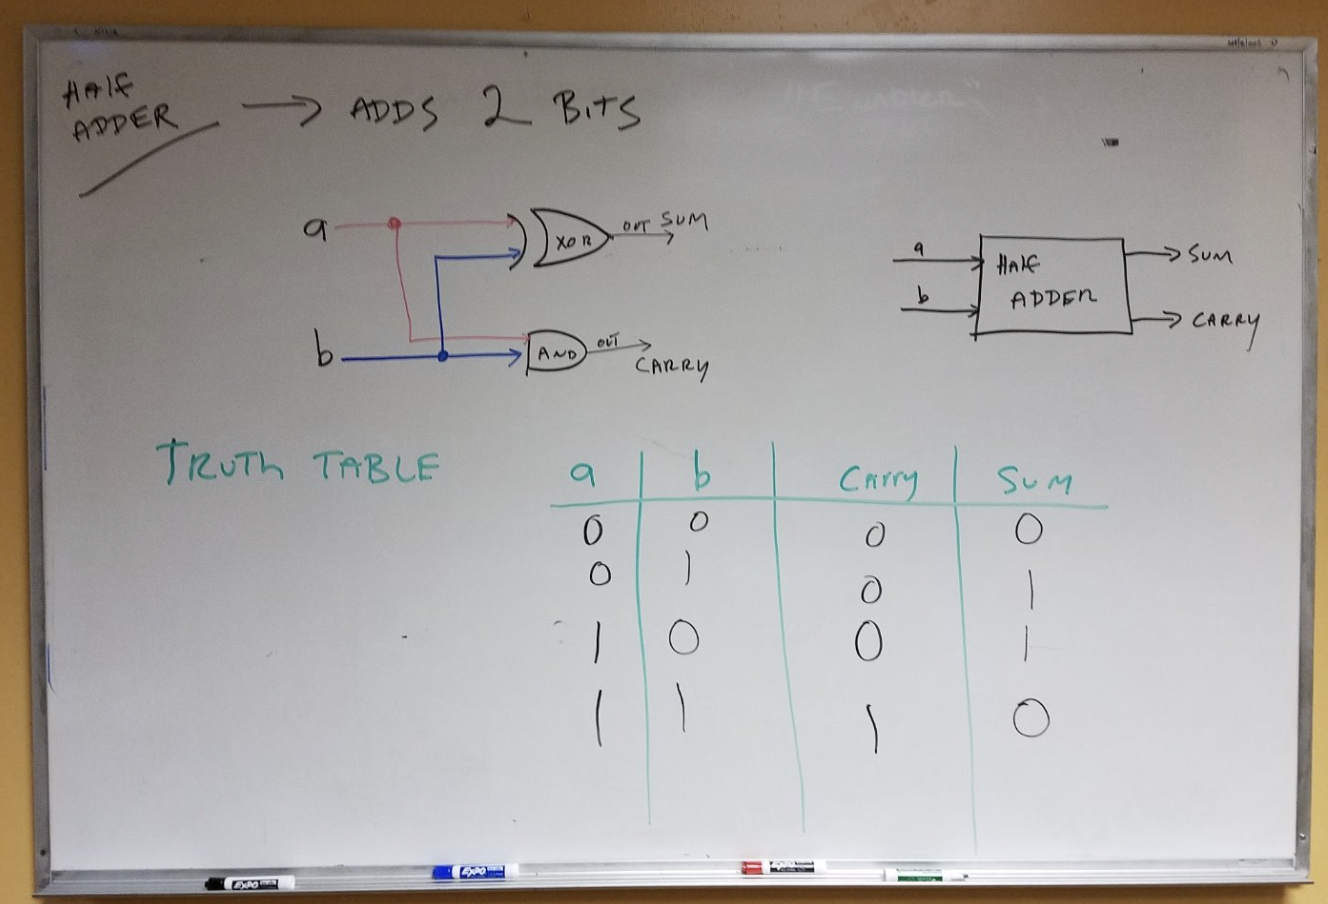 HALF
ADDER → ADDS 2 BITS
a XOR OUT SUM
b AND OUT CARRY
a HALF SUM
b ADDER CARRY
TRUTH TABLE
a b Carry SUM
0 0 0 0
0 1 0 1
1 0 0 1
1 1 1 0
EXPO EXPO EXPO